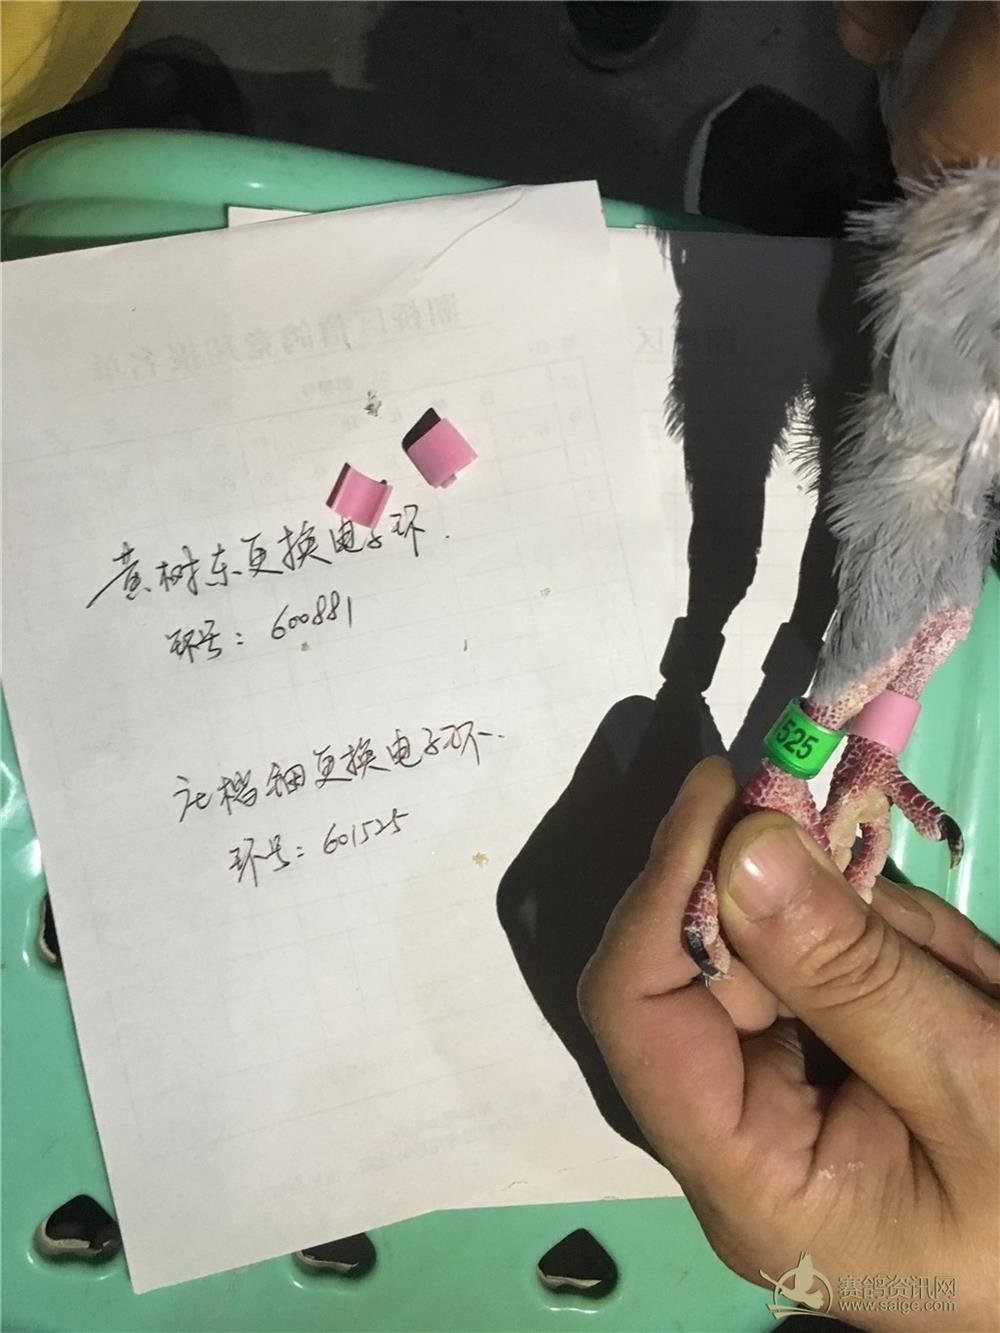 黄树东更换电子环.
环号: 600881
更换电子环.
环号: 601525
525
赛鸽资讯网
www.saige.com